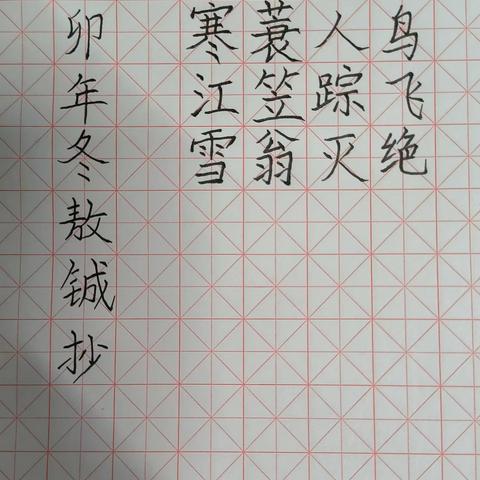 鸟飞绝
人踪灭
蓑笠翁
寒江雪
卯年冬敖铖抄